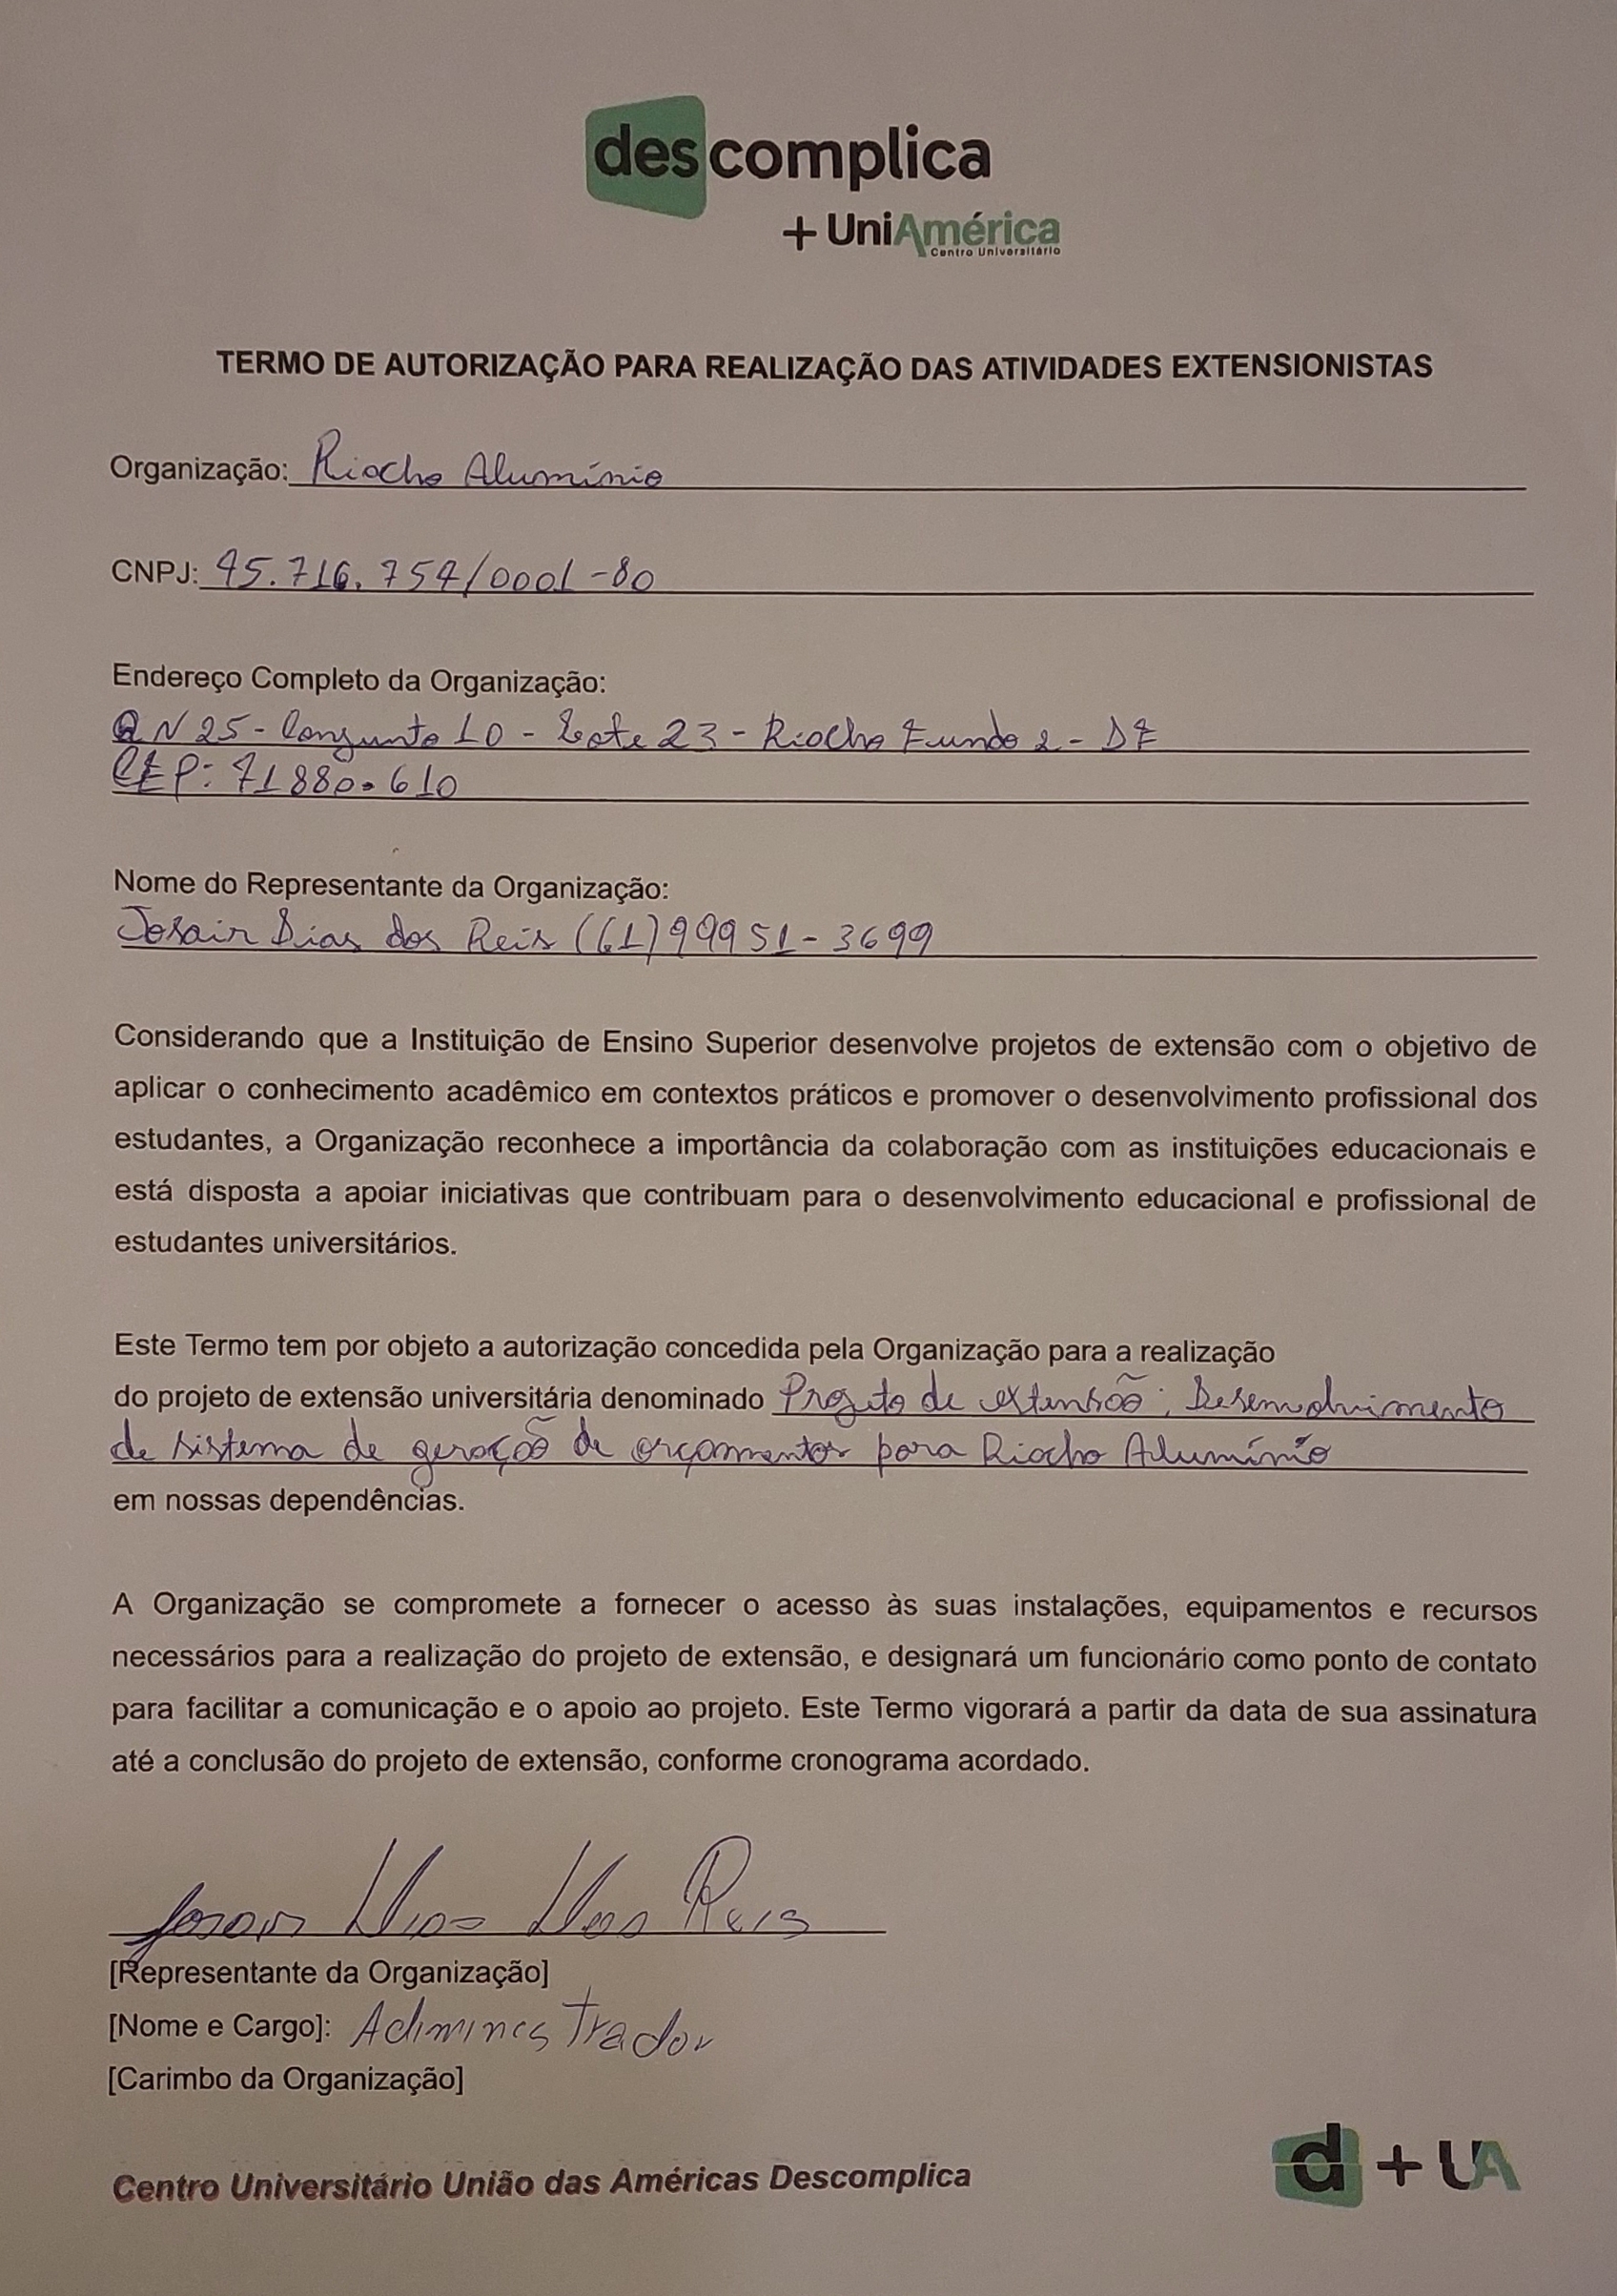 descomplica
+ UniAmérica
Centro Universitário
TERMO DE AUTORIZAÇÃO PARA REALIZAÇÃO DAS ATIVIDADES EXTENSIONISTAS
Organização: Riacho Alumínio
CNPJ: 45.716.754/0001-80
Endereço Completo da Organização:
QN 25 - Conjunto 10 - Lote 23 - Riacho Fundo 2 - DF
CEP: 71880-610
Nome do Representante da Organização:
Josair Dias dos Reis (61) 99951-3699
Considerando que a Instituição de Ensino Superior desenvolve projetos de extensão com o objetivo de
aplicar o conhecimento acadêmico em contextos práticos e promover o desenvolvimento profissional dos
estudantes, a Organização reconhece a importância da colaboração com as instituições educacionais e
está disposta a apoiar iniciativas que contribuam para o desenvolvimento educacional e profissional de
estudantes universitários.
Este Termo tem por objeto a autorização concedida pela Organização para a realização
do projeto de extensão universitária denominado Projeto de extensão: Desenvolvimento
de sistema de geração de orçamentos para Riacho Alumínio
em nossas dependências.
A Organização se compromete a fornecer o acesso às suas instalações, equipamentos e recursos
necessários para a realização do projeto de extensão, e designará um funcionário como ponto de contato
para facilitar a comunicação e o apoio ao projeto. Este Termo vigorará a partir da data de sua assinatura
até a conclusão do projeto de extensão, conforme cronograma acordado.
Josair Dias Dos Reis
[Representante da Organização]
[Nome e Cargo]: Administrador
[Carimbo da Organização]
Centro Universitário União das Américas Descomplica
d + UA